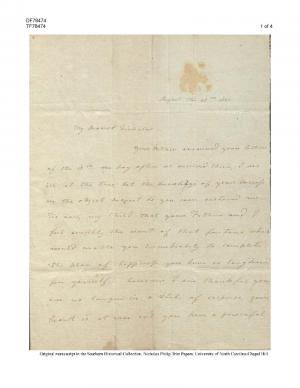 DF78474
TF78474
1 of 4
August the 28th
My Dearest Nicholas
Your Father answered your letter
of the 8th one day after it arrived then, I was
ill at the time but the knowledge of your success
in the object dearest to you
my Child that your Father and I
feel sensibly the want of that fortune which
would enable you immediately to complete
the plan of happiness you have so long formed
for yourself. however I am thankful you
are no longer in a state of suspense your
heart is at ease and you have a powerful
Original manuscript in the Southern Historical Collection, Nicholas Philip Trist Papers, University of North Carolina-Chapel Hill